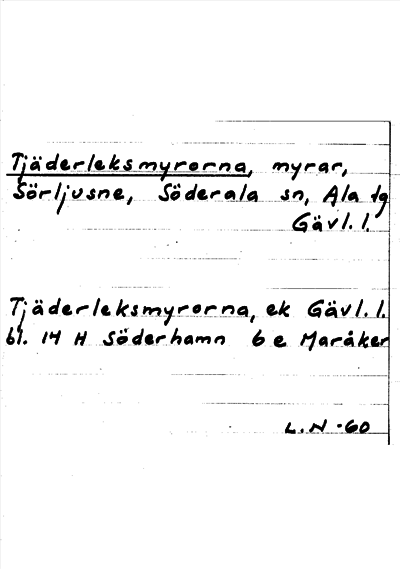 Tjäderleksmyrorna, myrar,
Sörljusne, Söderala sn, Ala tg
Gävl. l.
Tjäderleksmyrorna, ek Gävl. l.
bl. 14 H Söderhamn 6 e Maråker
L. N -60